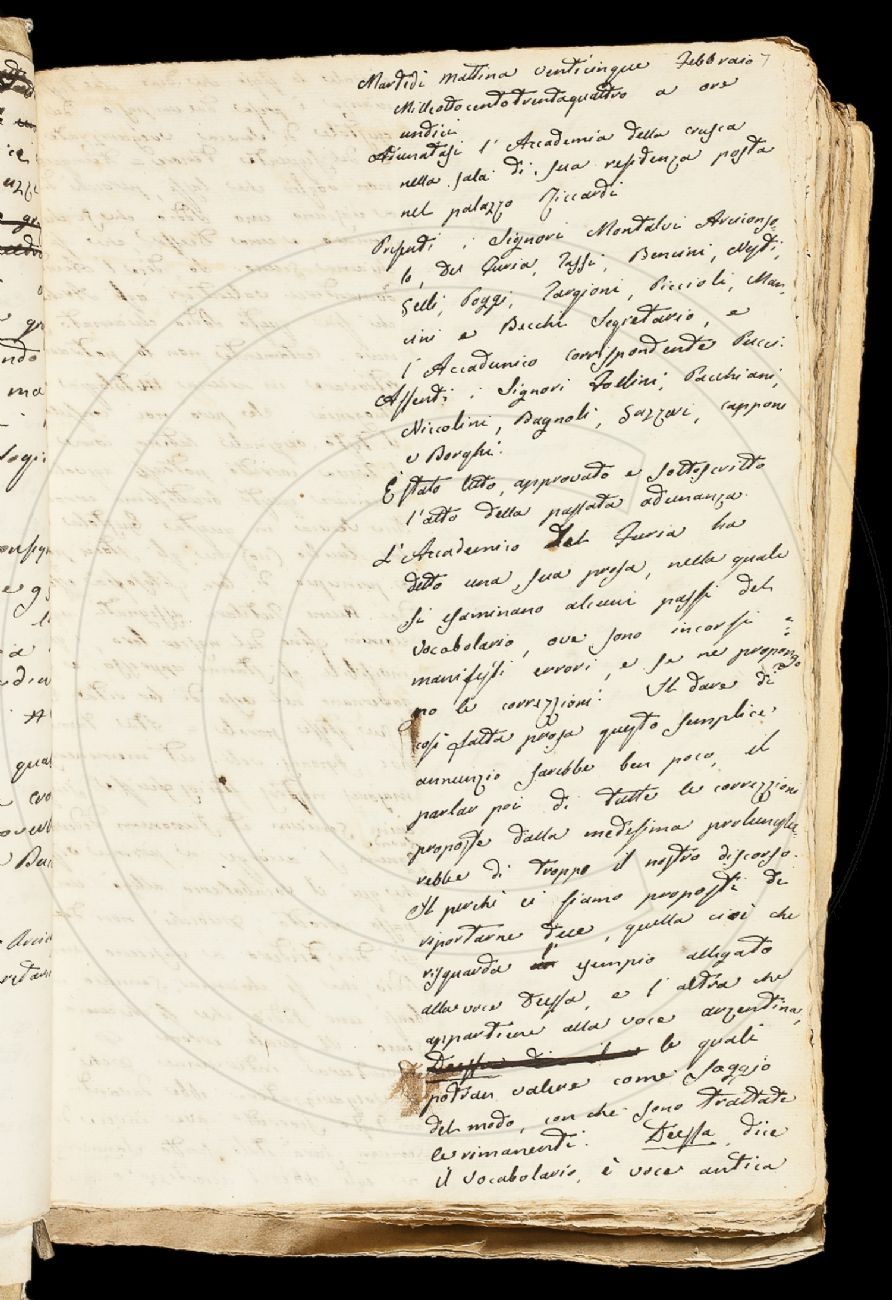 Martedì mattina venticinque Febbraio
Milleottocentotrentaquattro a ore
undici
Adunatasi l'Accademia della crusca
nella sala di sua residenza posta
nel palazzo Riccardi
Presenti i Signori Montalvi Arciconso-
lo, Del Furia, Tassi, Bencini, Nesti,
Gelli, Poggi, Targioni, Piccioli, Man-
cini e Becchi Segretario, e
l'Accademico corrispondente Pucci.
Assenti i Signori Follini, Pacchiani,
Niccolini, Bagnoli, Gazzeri, Capponi
e Borghi.
È stato letto, approvato e sottoscritto
l'atto della passata adunanza.
L'Accademico Del Furia ha
detto una sua prosa, nella quale
si esaminano alcuni passi del
vocabolario, ove sono incorsi
manifesti errori, e se ne propongo
no le correzzioni. Il dare di
così fatta prosa questo semplice
annunzio sarebbe ben poco, il
parlar poi di tutte le correzzioni
proposte dalla medesima prolunghe-
rebbe di troppo il nostro discorso.
Il perchè ci siamo proposti di
riportarne due, quella cioè che
risguarda l' esempio allegato
alla voce Deessa, e l'altra che
appartiene alla voce arzentina,
le quali
potran valere come saggio
del modo, con che sono trattate
le rimanenti. Deessa, dice
il vocabolario, è voce antica